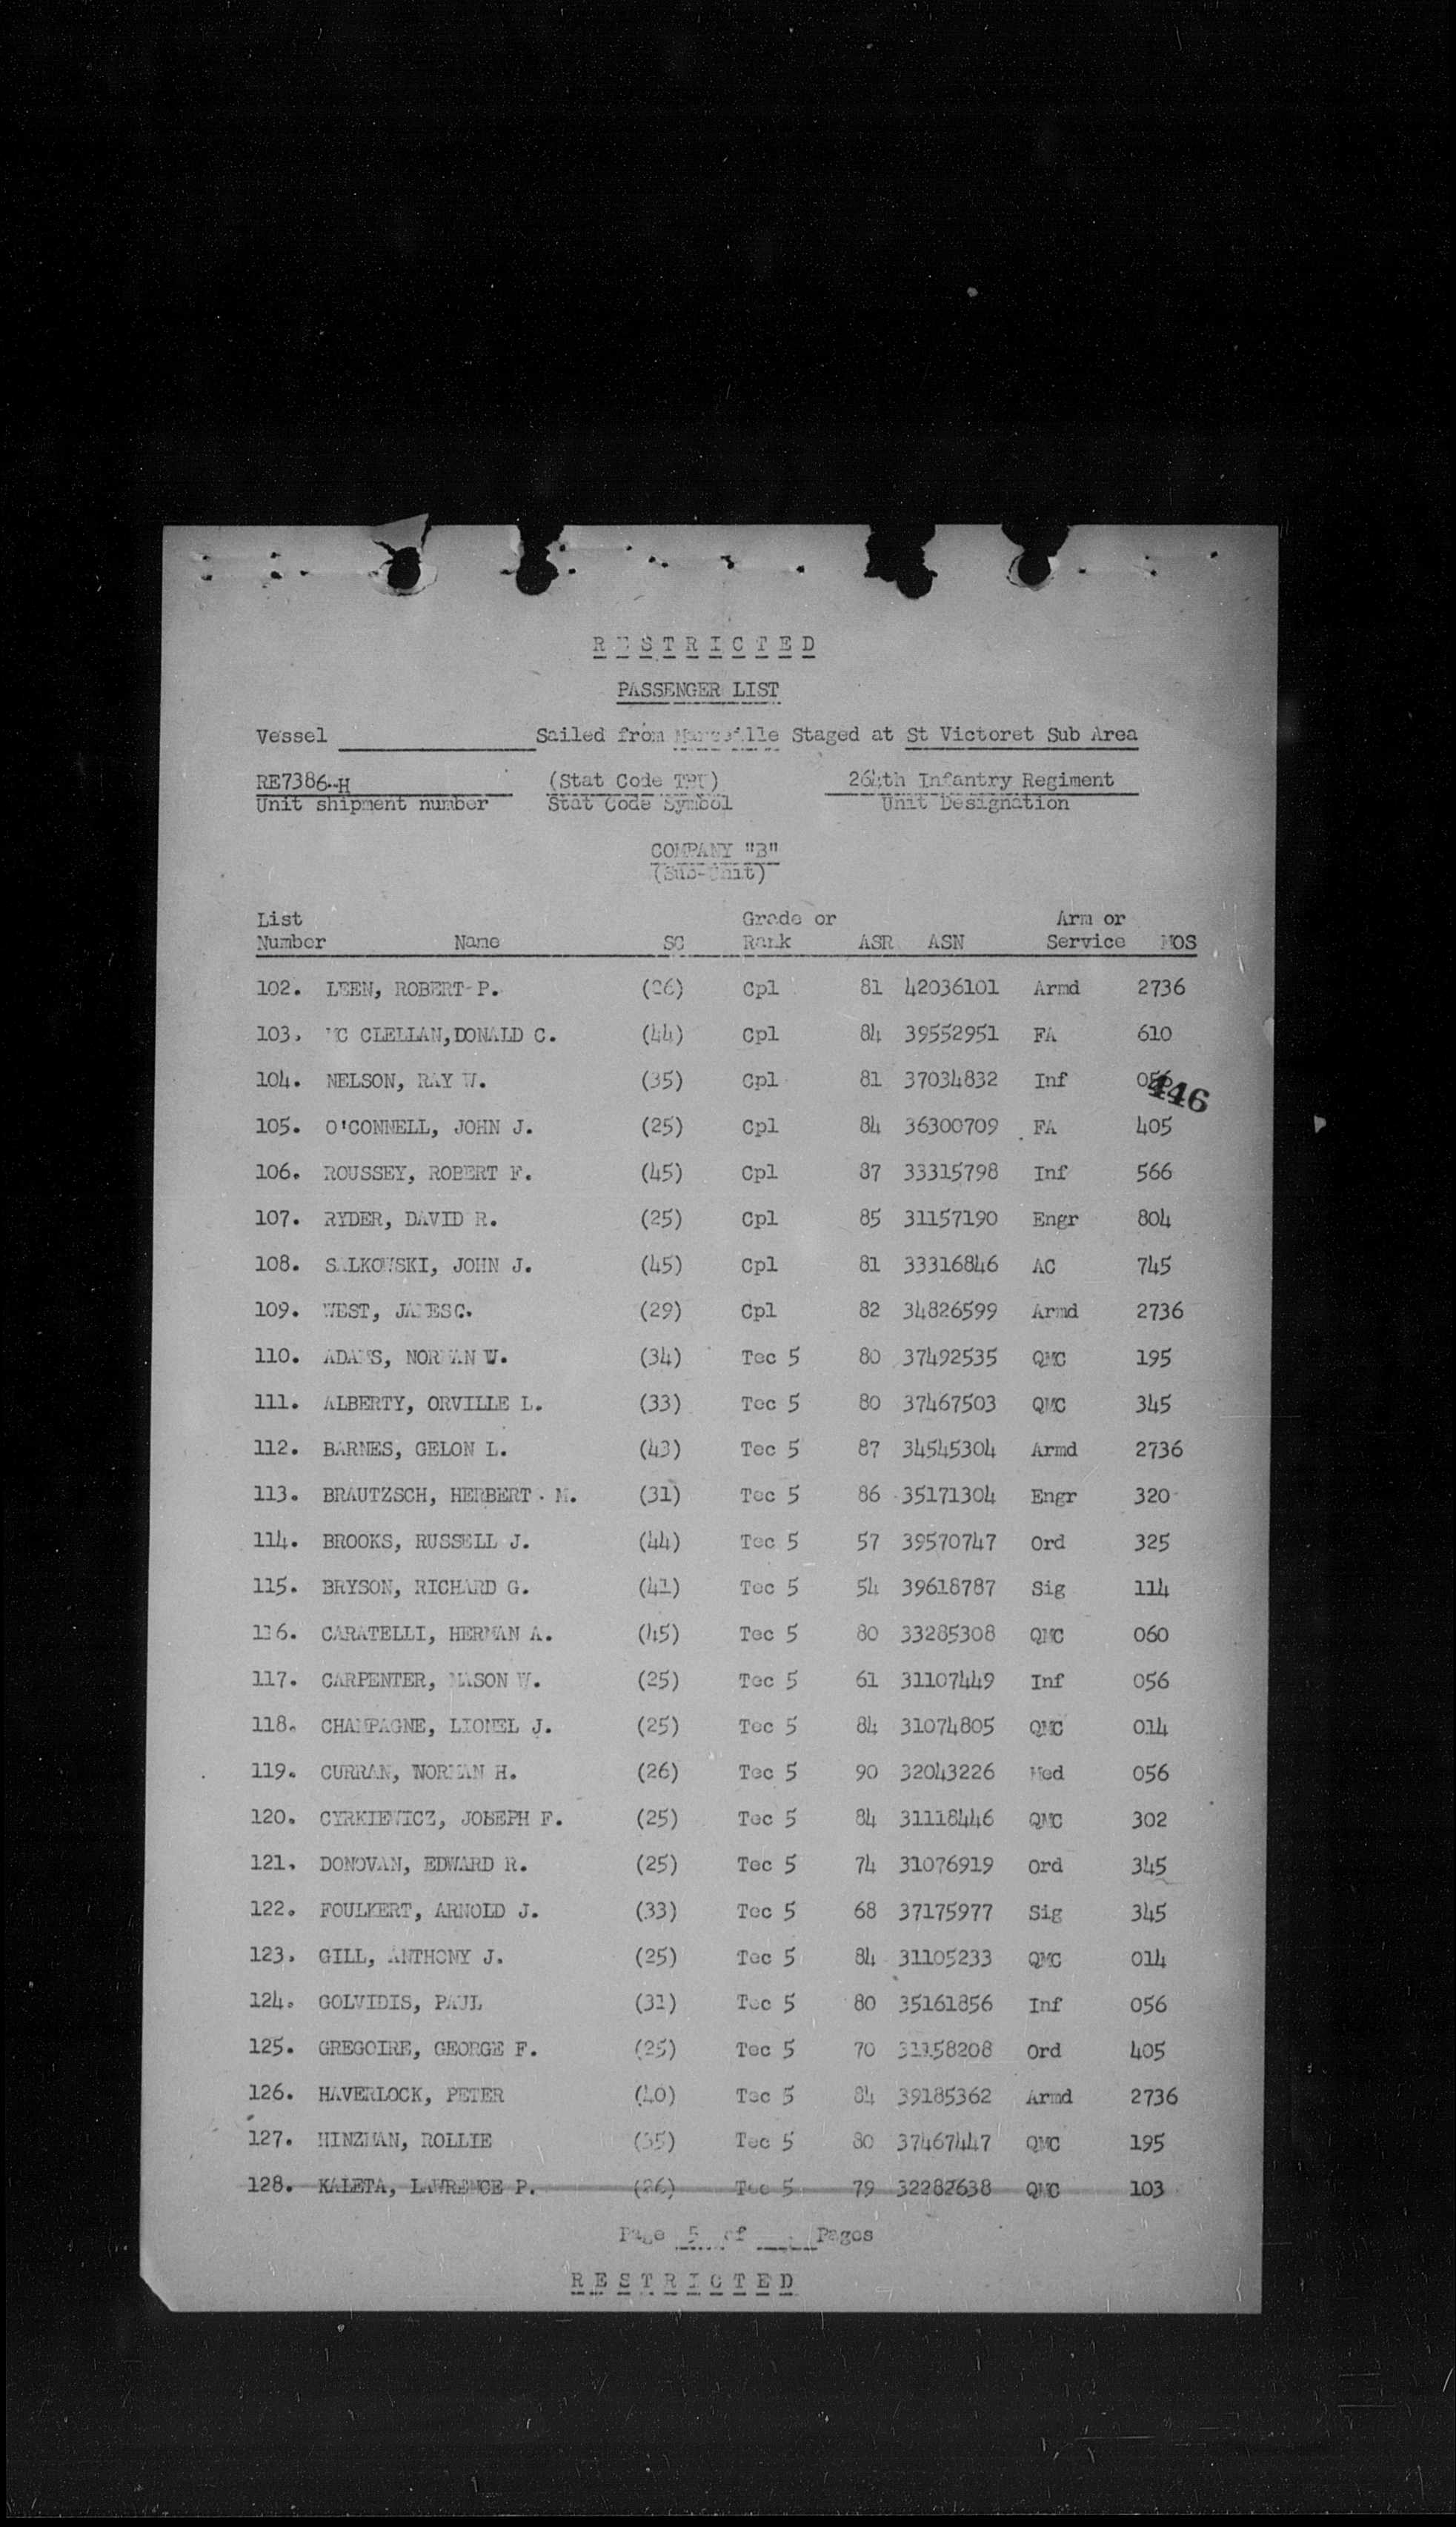 RESTRICTED
PASSENGER LIST
Vessel ________ Sailed from Marseille Staged at St Victoret Sub Area
RE7386-H (Stat Code TPU) 264th Infantry Regiment
Unit shipment number Stat Code Symbol Unit Designation
COMPANY "B"
(Sub-Unit)
List Grade or Arm or
Number Name SC Rank ASR ASN Service MOS
102. LEEN, ROBERT P. (26) Cpl 81 42036101 Armd 2736
103. MC CLELLAN, DONALD C. (44) Cpl 84 39552951 FA 610
104. NELSON, RAY W. (35) Cpl 81 37034832 Inf
446
105. O'CONNELL, JOHN J. (25) Cpl 84 36300709 FA 405
106. ROUSSEY, ROBERT F. (45) Cpl 87 33315798 Inf 566
107. RYDER, DAVID R. (25) Cpl 85 31157190 Engr 804
108. SALKOWSKI, JOHN J. (45) Cpl 81 33316846 AC 745
109. WEST, JAMES C. (29) Cpl 82 34826599 Armd 2736
110. ADAMS, NORMAN W. (34) Tec 5 80 37492535 QMC 195
111. ALBERTY, ORVILLE L. (33) Tec 5 80 37467503 QMC 345
112. BARNES, GELON L. (43) Tec 5 87 34545304 Armd 2736
113. BRAUTZSCH, HERBERT M. (31) Tec 5 86 35171304 Engr 320
114. BROOKS, RUSSELL J. (44) Tec 5 57 39570747 Ord 325
115. BRYSON, RICHARD G. (41) Tec 5 54 39618787 Sig 114
116. CARATELLI, HERMAN A. (45) Tec 5 80 33285308 QMC 060
117. CARPENTER, MASON W. (25) Tec 5 61 31107449 Inf 056
118. CHAMPAGNE, LIONEL J. (25) Tec 5 84 31074805 QMC 014
119. CURRAN, NORMAN H. (26) Tec 5 90 32043226 Med 056
120. CYRKIEWICZ, JOSEPH F. (25) Tec 5 84 31118446 QMC 302
121. DONOVAN, EDWARD R. (25) Tec 5 74 31076919 Ord 345
122. FOULKERT, ARNOLD J. (33) Tec 5 68 37175977 Sig 345
123. GILL, ANTHONY J. (25) Tec 5 84 31105233 QMC 014
124. GOLVIDIS, PAUL (31) Tec 5 80 35161856 Inf 056
125. GREGOIRE, GEORGE F. (25) Tec 5 70 31158208 Ord 405
126. HAVERLOCK, PETER (40) Tec 5 84 39185362 Armd 2736
127. HINZMAN, ROLLIE (35) Tec 5 80 37467447 QMC 195
128. KALETA, LAWRENCE P. (26) Tec 5 79 32282638 QMC 103
Page 5 of ____ Pages
RESTRICTED